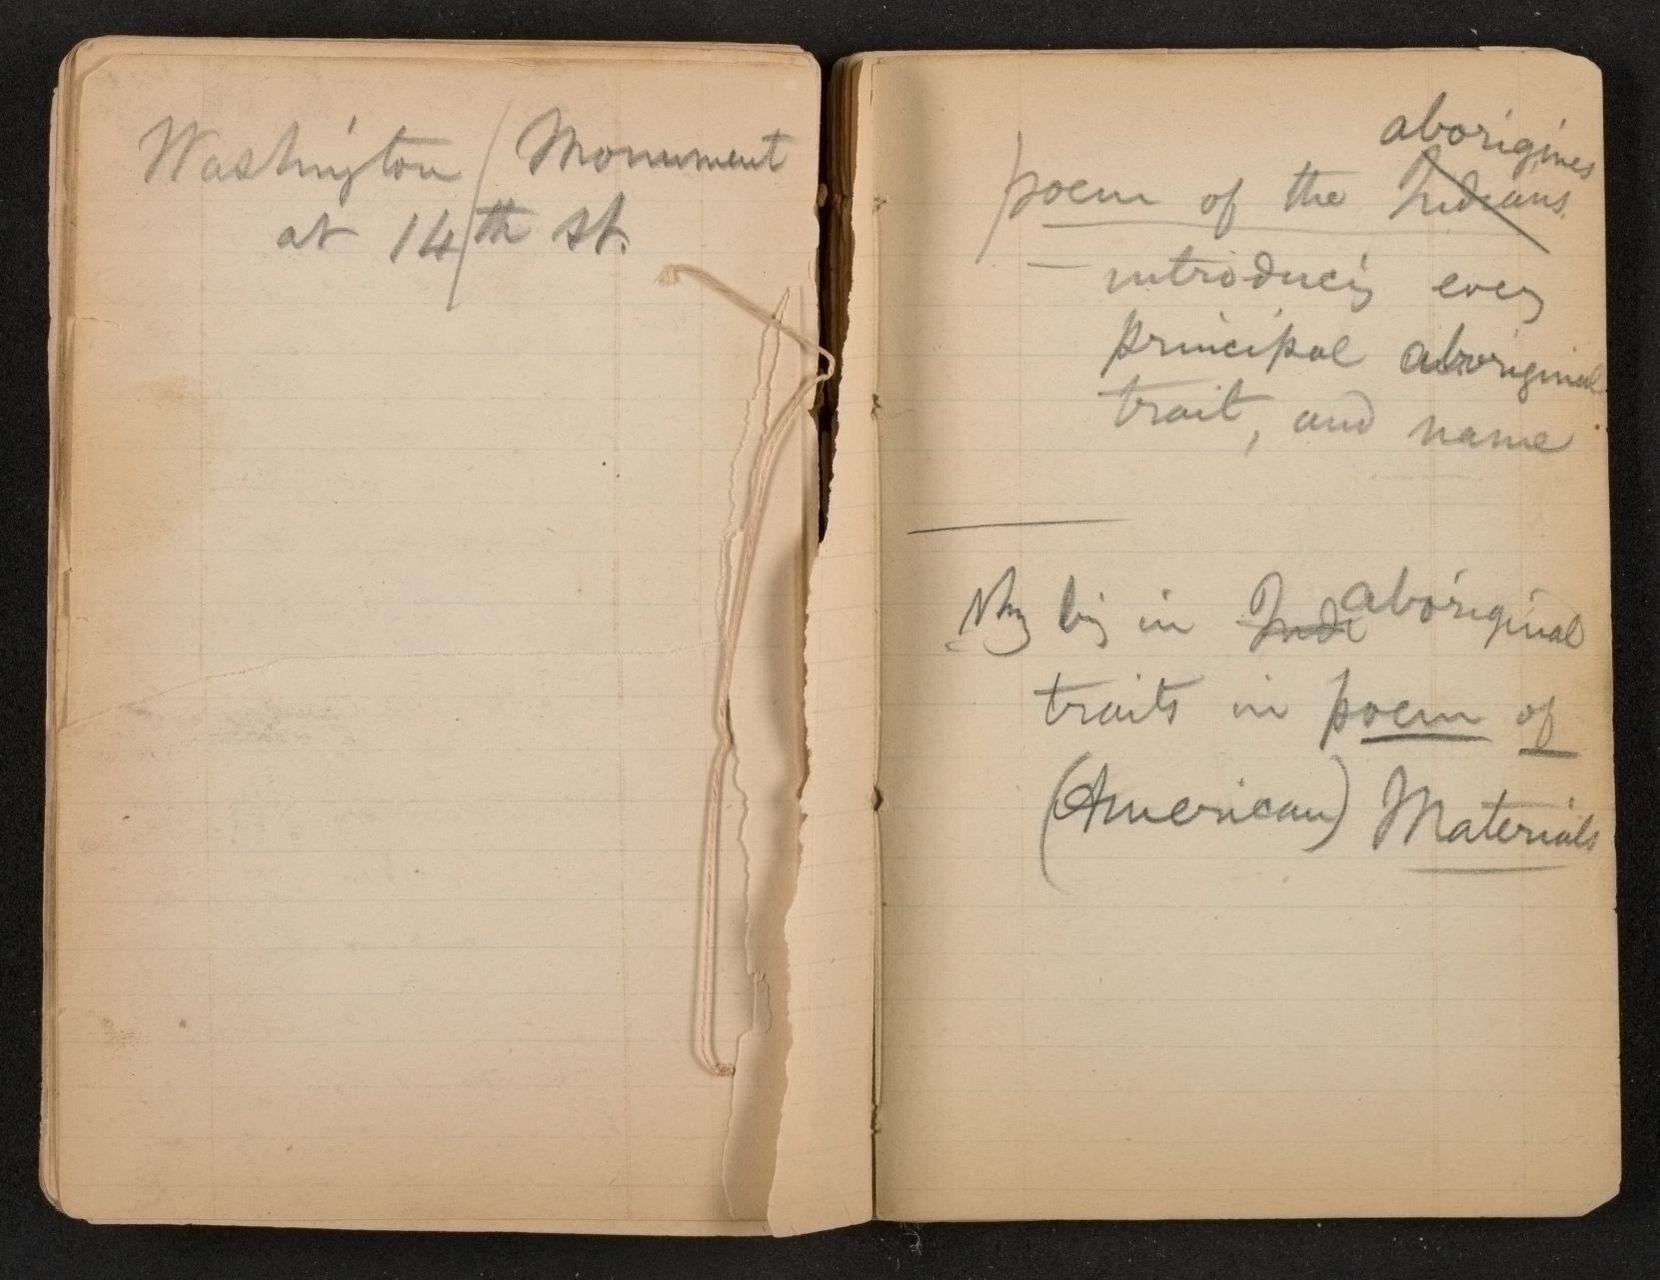 Washington Monument
at 14th st.
aborigines
poem of the Indians.
— introducing every
principal aboriginal
trait, and name
bring in Indi aboriginal
traits in poem of
(American) Materials